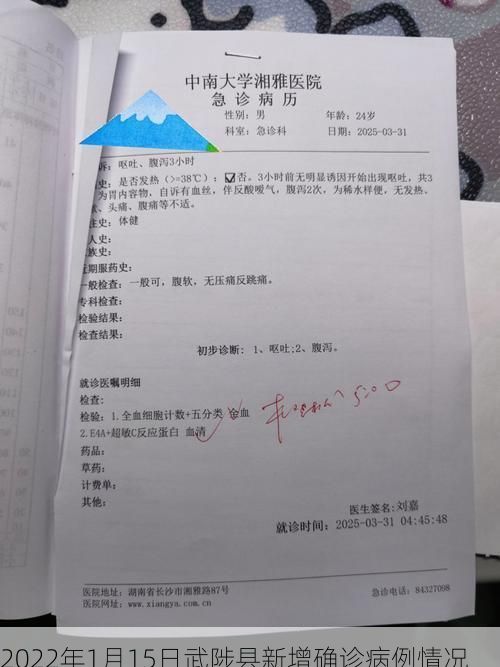 中南大学湘雅医院
急诊病历
性别：男 年龄：24岁
科室：急诊科 日期：2025-03-31
诉：呕吐、腹泻3小时
史：是否发热（>=38℃）：☑否。3小时前无明显诱因开始出现呕吐，共3
为胃内容物，自诉有血丝，伴反酸嗳气，腹泻2次，为稀水样便，无发热、
、头痛、腹痛等不适。
往史：体健
人史：
族史：
近期服药史：
一般检查：一般可，腹软，无压痛反跳痛。
专科检查：
检验结果：
检查结果：
初步诊断： 1、呕吐；2、腹泻。
就诊医嘱明细
检查：
检验：1.全血细胞计数+五分类 全血
2.E4A+超敏C反应蛋白 血清
药品：
草药：
计费单：
其他：
医生签名：刘嘉
就诊时间：2025-03-31 04:45:48
医院地址：湖南省长沙市湘雅路87号 急诊电话：84327098
医院网址：www.xiangya.com.cn
2022年1月15日武陟县新增确诊病例情况